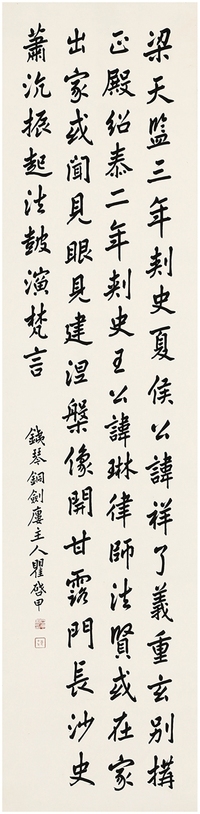 梁天監三年刾史夏侯公諱祥了義重玄別搆
正殿紹泰二年刾史王公諱琳律師法賢或在家
出家或聞見眼見建涅槃像開甘露門長沙史
蕭沇振起法鼓演梵言
鐵琴銅劍廔主人瞿啓甲